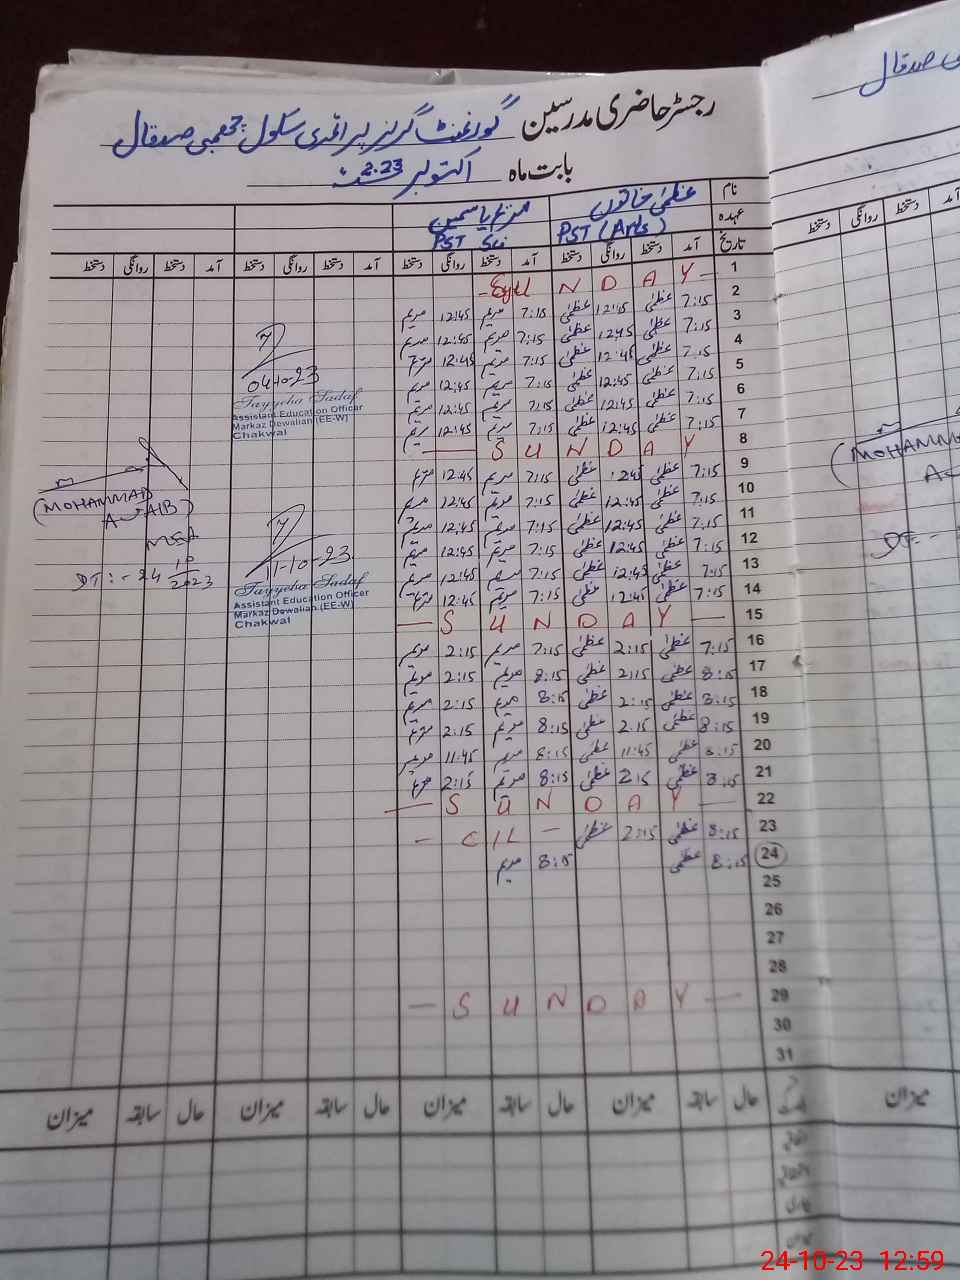 رجسٹر حاضری مدرسین گورنمنٹ گرلز پرائمری سکول صدقال
بابت ماہ اکتوبر 2023
نام عظمیٰ خاتون مریم یاسمین
عہدہ PST (Arts) PST Sci
تاریخ آمد دستخط روانگی دستخط آمد دستخط روانگی دستخط آمد دستخط روانگی دستخط آمد دستخط روانگی دستخط
1 SUNDAY
2 7:15 عظمیٰ 12:45 عظمیٰ 7:15 مریم 12:45 مریم
3 7:15 عظمیٰ 12:45 عظمیٰ 7:15 مریم 12:45 مریم
4 7:15 عظمیٰ 12:45 عظمیٰ 7:15 مریم 12:45 مریم
5 7:15 عظمیٰ 12:45 عظمیٰ 7:15 مریم 12:45 مریم
6 7:15 عظمیٰ 12:45 عظمیٰ 7:15 مریم 12:45 مریم
7 7:15 عظمیٰ 12:45 عظمیٰ 7:15 مریم 12:45 مریم
8 SUNDAY
9 7:15 عظمیٰ 12:45 عظمیٰ 7:15 مریم 12:45 مریم
10 7:15 عظمیٰ 12:45 عظمیٰ 7:15 مریم 12:45 مریم
11 7:15 عظمیٰ 12:45 عظمیٰ 7:15 مریم 12:45 مریم
12 7:15 عظمیٰ 12:45 عظمیٰ 7:15 مریم 12:45 مریم
13 7:15 عظمیٰ 12:45 عظمیٰ 7:15 مریم 12:45 مریم
14 7:15 عظمیٰ 12:45 عظمیٰ 7:15 مریم 12:45 مریم
15 — SUNDAY —
16 7:15 عظمیٰ 2:15 عظمیٰ 7:15 مریم 2:15 مریم
17 8:15 عظمیٰ 2:15 عظمیٰ 8:15 مریم 2:15 مریم
18 8:15 عظمیٰ 2:15 عظمیٰ 8:15 مریم 2:15 مریم
19 8:15 عظمیٰ 2:15 عظمیٰ 8:15 مریم 2:15 مریم
20 8:15 عظمیٰ 11:45 عظمیٰ 8:15 مریم 11:45 مریم
21 8:15 عظمیٰ 2:15 عظمیٰ 8:15 مریم 2:15 مریم
22 — SUNDAY —
23 8:15 عظمیٰ 2:15 عظمیٰ - C/L -
24 8:15 عظمیٰ 8:15 مریم
25
26
27
28
29 — SUNDAY —
30
31
حال سابقہ میزان حال سابقہ میزان حال سابقہ میزان حال سابقہ میزان
04-10-23
Tayyeba Sadaf
Assistant Education Officer
Markaz Dewalian (EE-W)
Chakwal
11-10-23
Tayyeba Sadaf
Assistant Education Officer
Markaz Dewalian (EE-W)
Chakwal
(MOHAMMAD
DT:- 24 10
2023
صدقال
روانگی دستخط آمد
(MOHAMM
DT. -
میزان
24-10-23 12:59